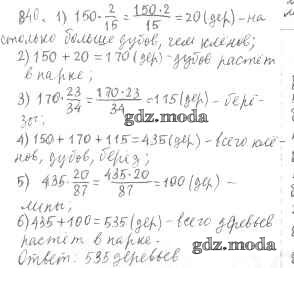 840. 1) 150·2/15 = 150·2/15 = 20 (дер) - на
столько больше дубов, чем клёнов;
2) 150 + 20 = 170 (дер) - дубов растёт
в парке;
3) 170·23/34 = 170·23/34 = 115 (дер) - берё-
з;
gdz.moda
4) 150 + 170 + 115 = 435 (дер) - всего клё-
нов, дубов, берёз;
5) 435·20/87 = 435·20/87 = 100 (дер) -
липы;
gdz.moda
6) 435 + 100 = 535 (дер) - всего деревьев
растёт в парке.
gdz.moda
Ответ: 535 деревьев